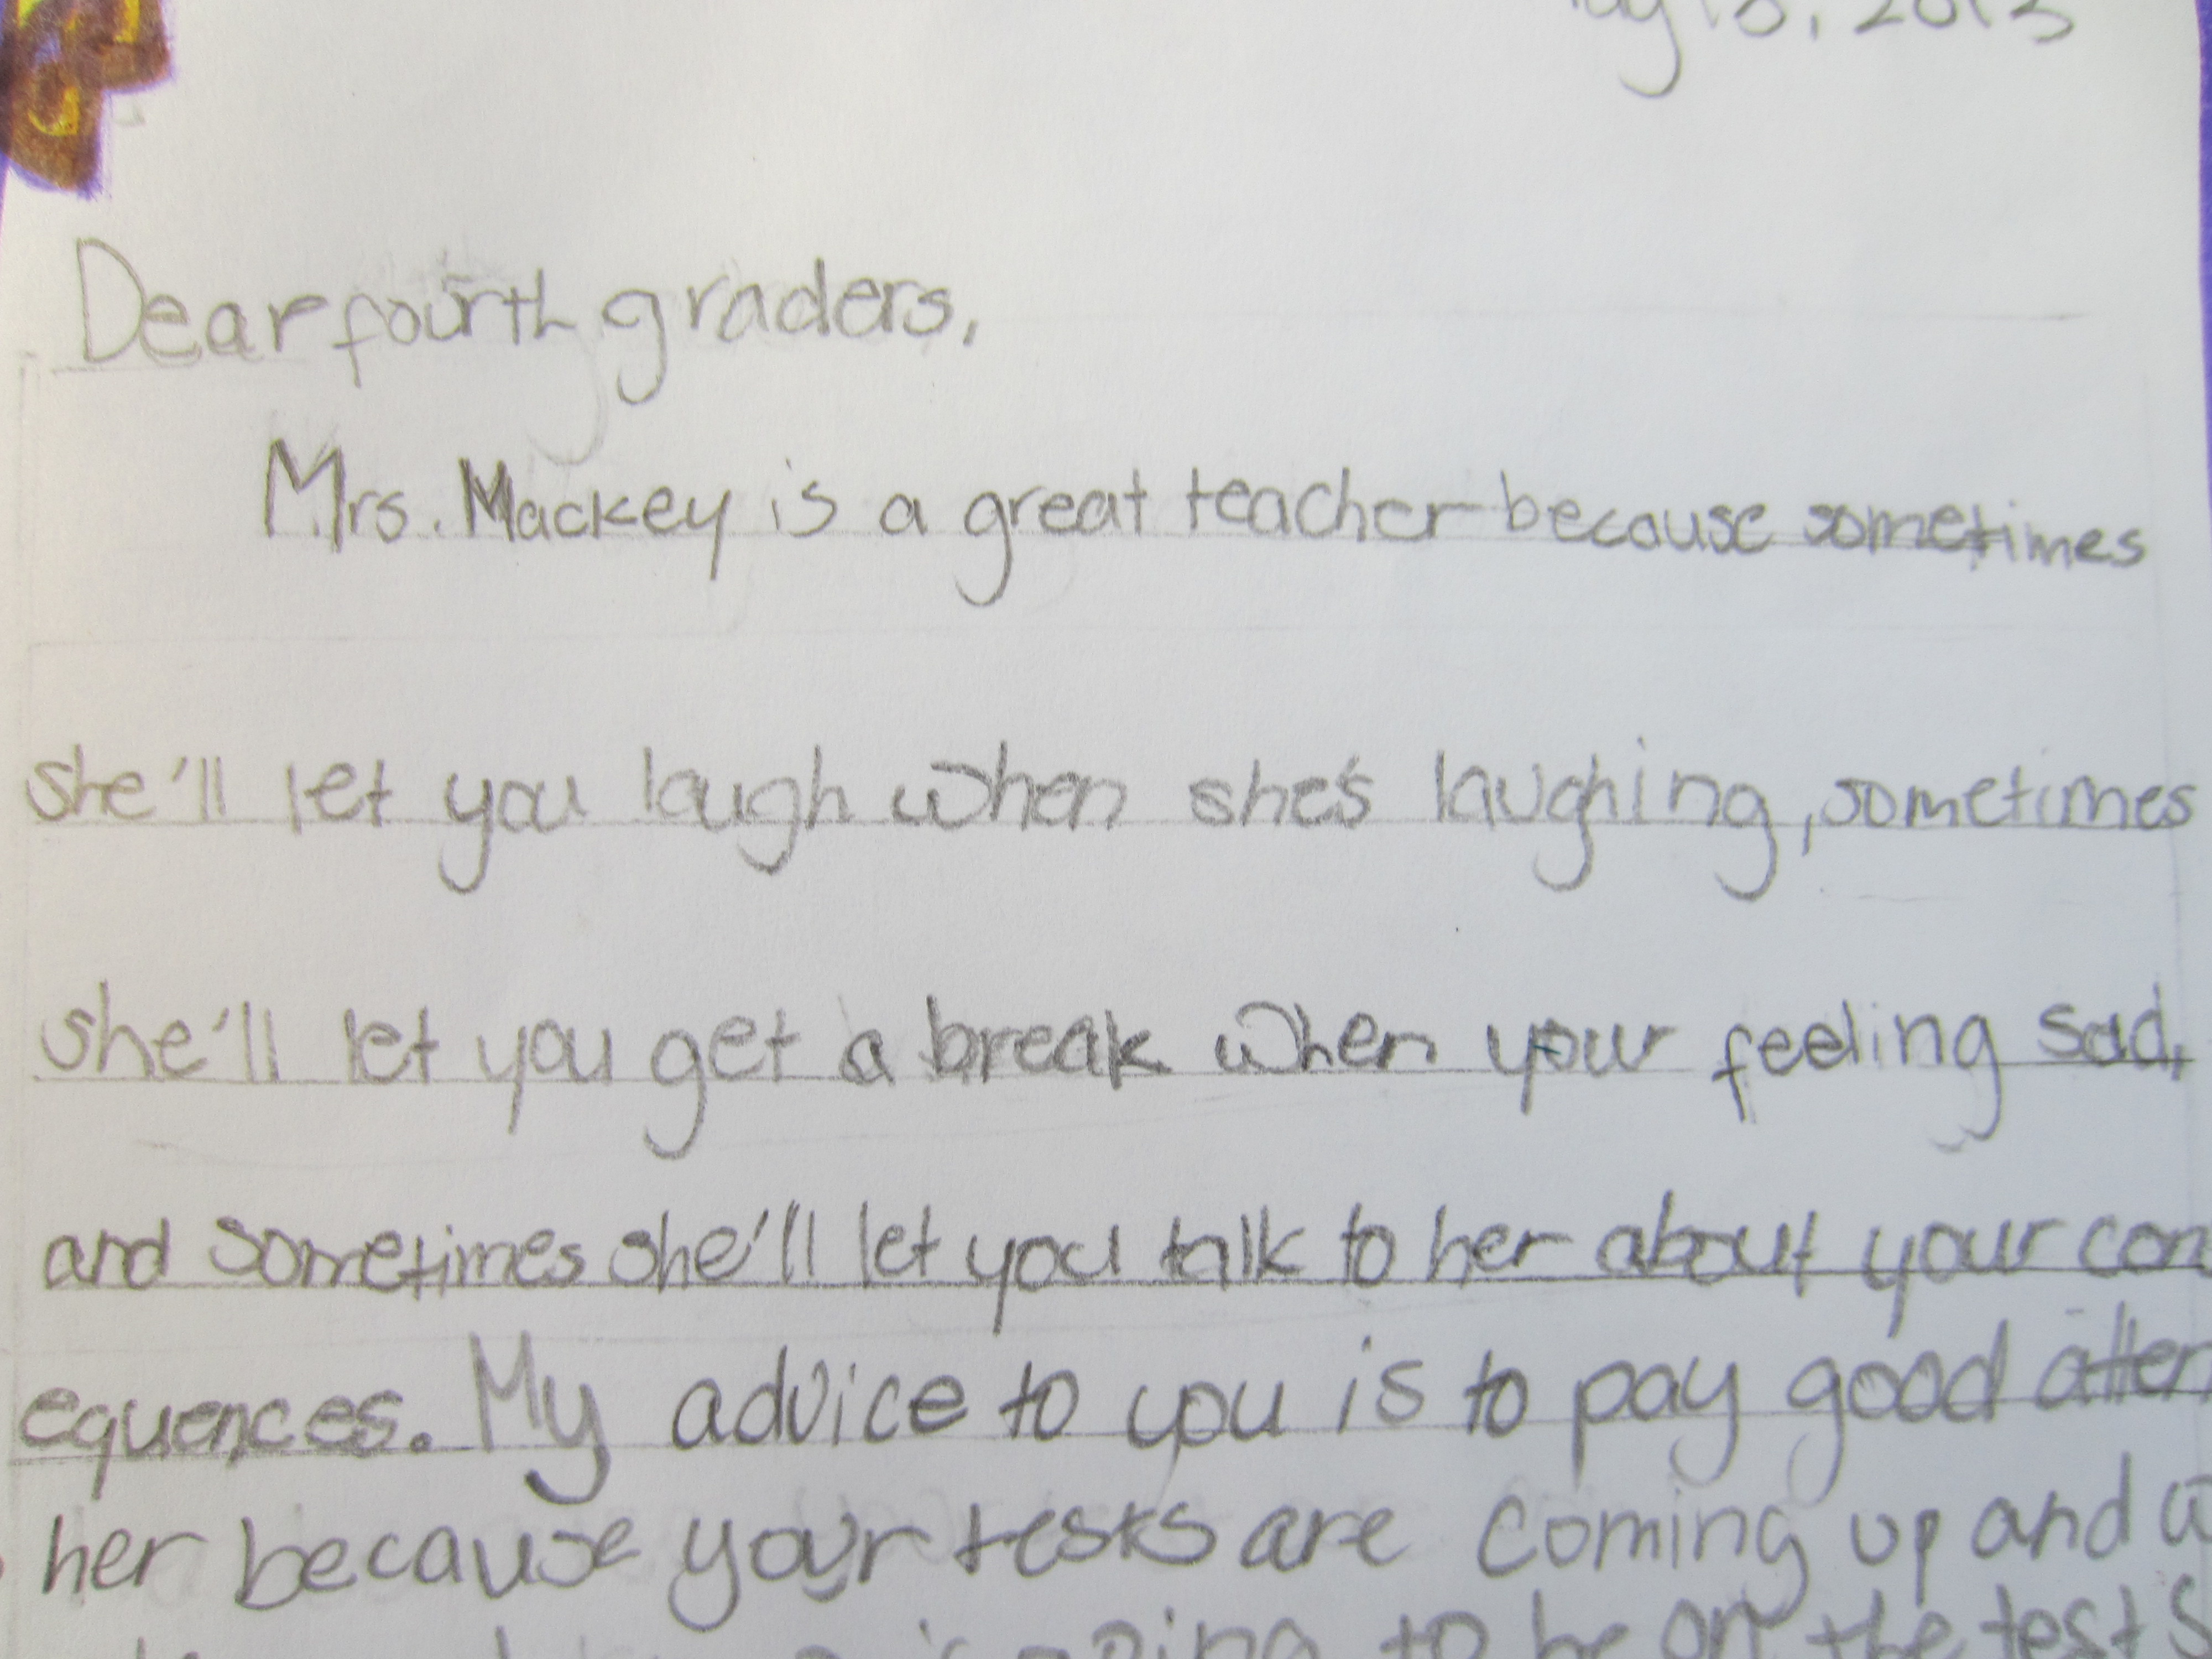 2013
Dear fourth graders,
Mrs. Mackey is a great teacher because sometimes
she'll let you laugh when she's laughing, sometimes
she'll let you get a break when your feeling sad,
and sometimes she'll let you talk to her about your con
equences. My advice to you is to pay good atten
her because your tests are coming up and
is going to be on the test